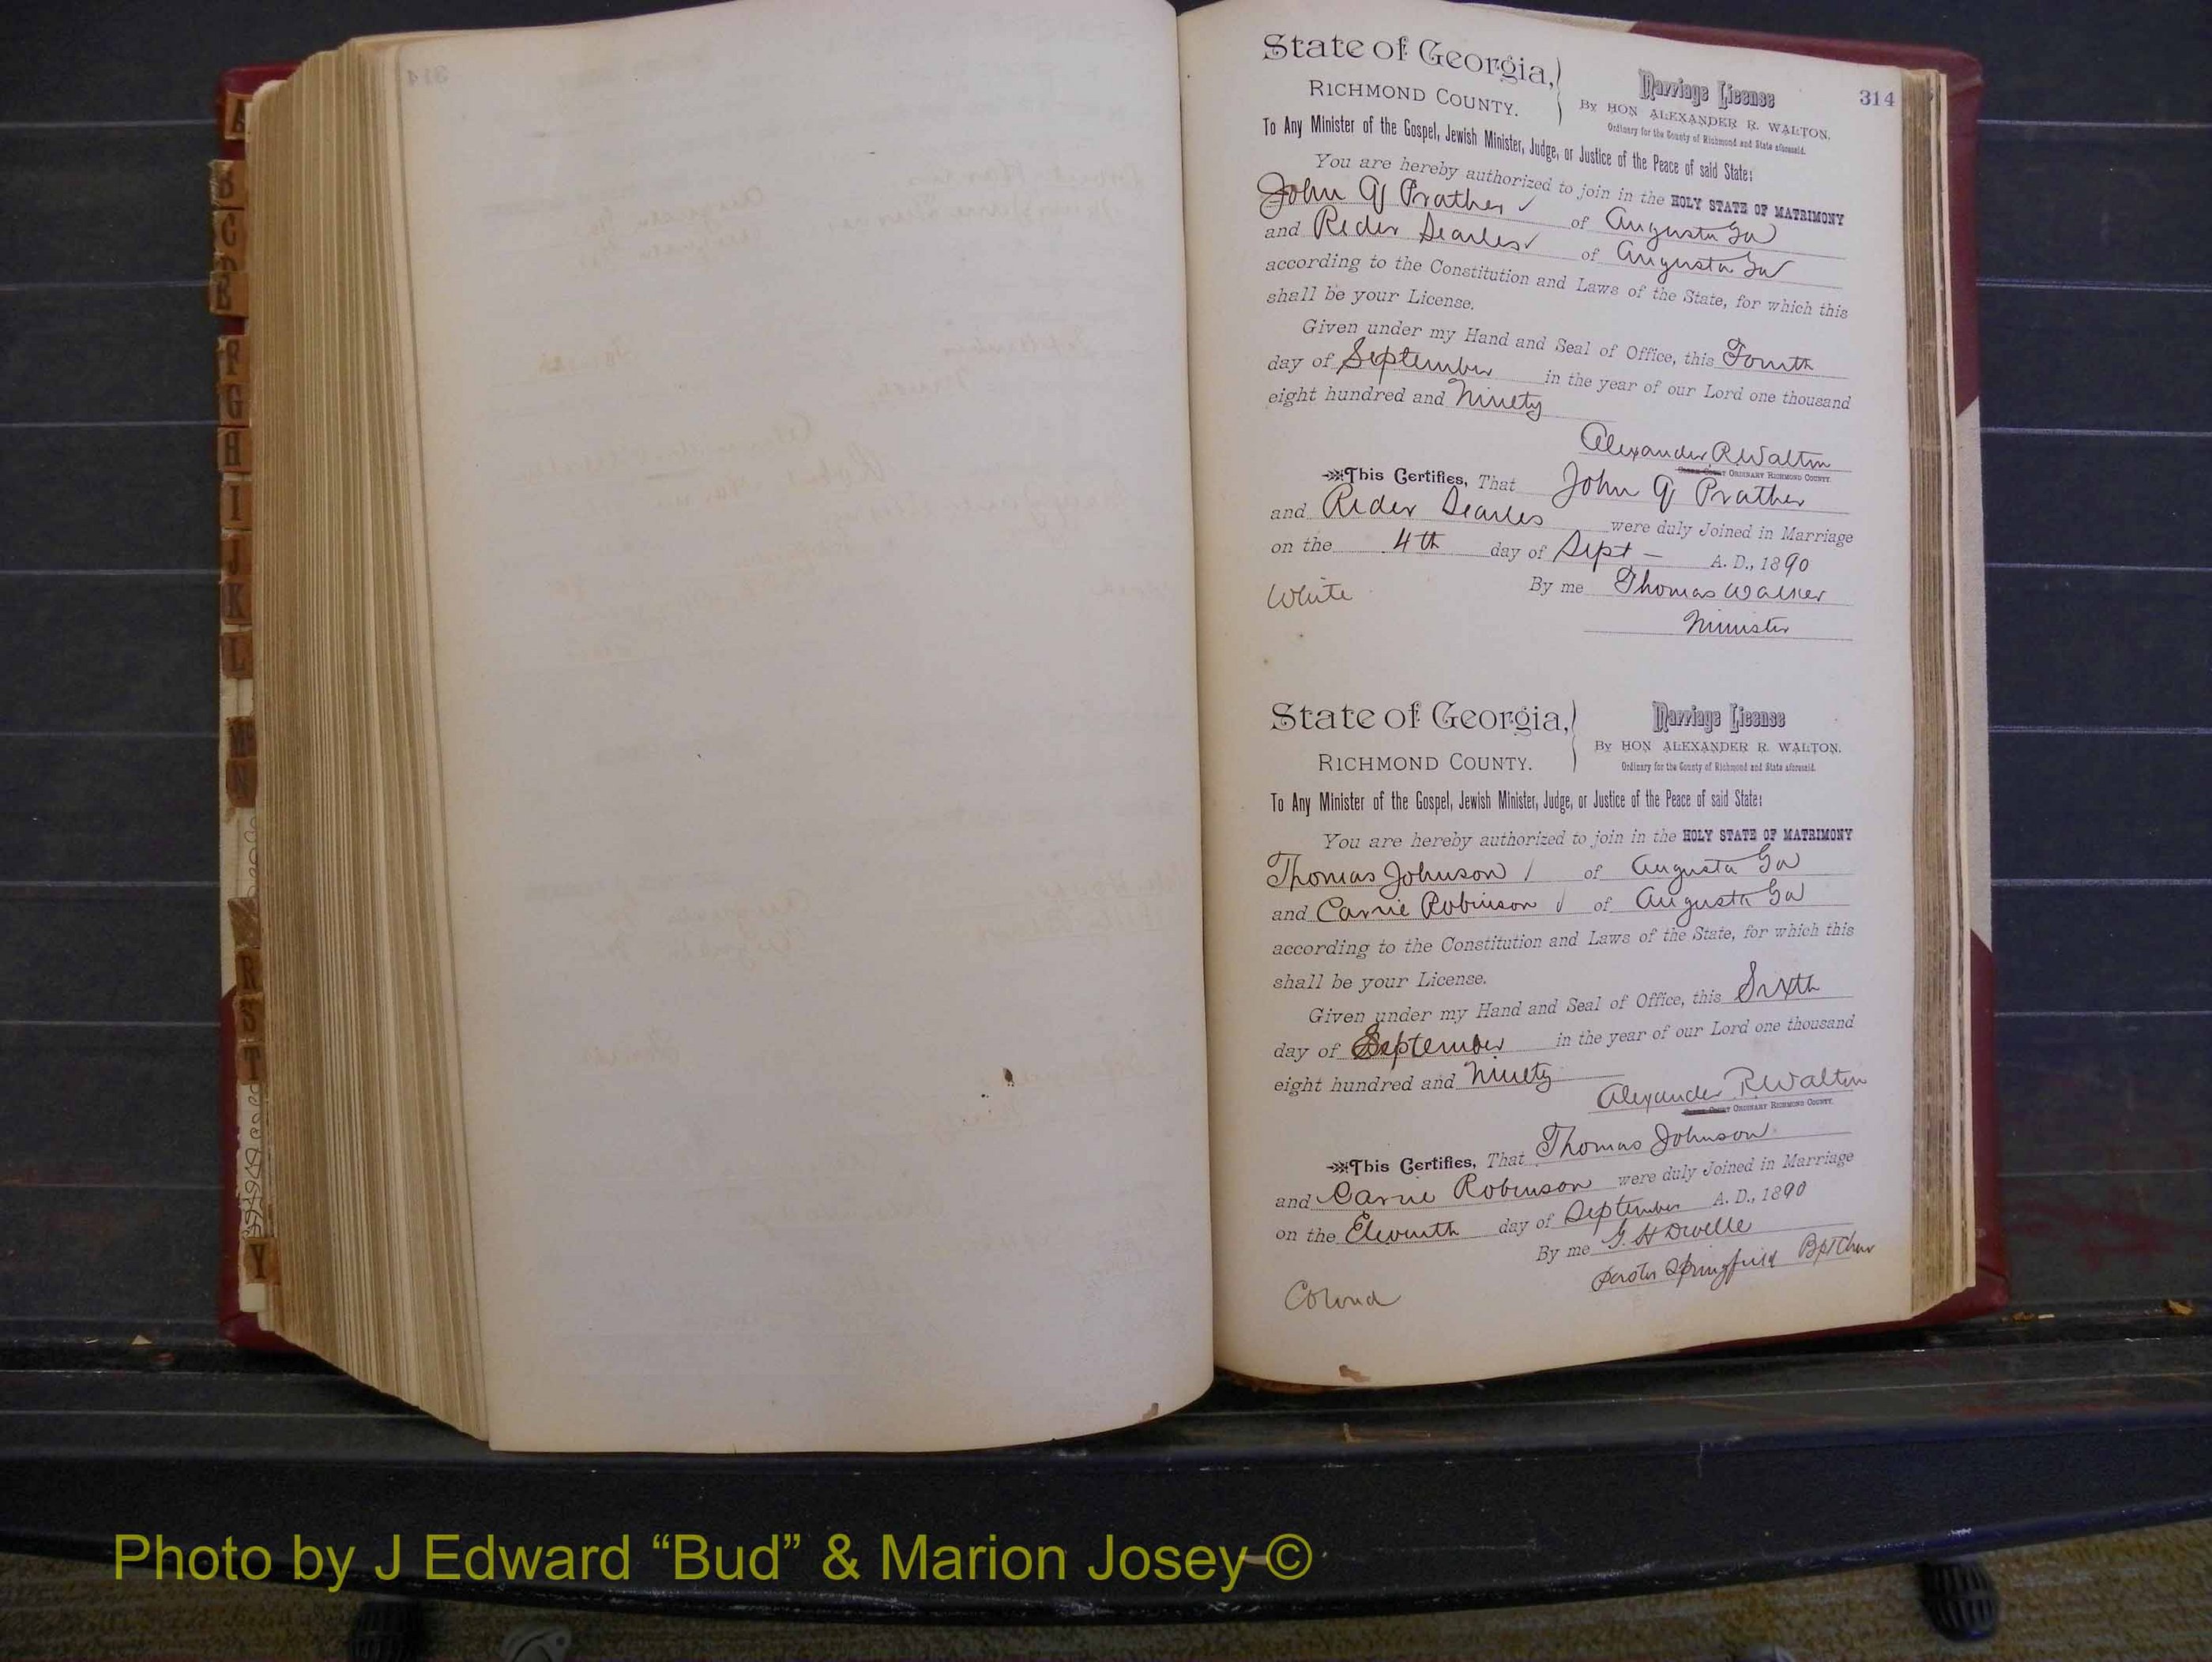 314
State of Georgia,
RICHMOND COUNTY.
Marriage License
By HON ALEXANDER R. WALTON.
Ordinary for the County of Richmond and State aforesaid.
To Any Minister of the Gospel, Jewish Minister, Judge, or Justice of the Peace of said State:
You are hereby authorized to join in the HOLY STATE OF MATRIMONY
John G Prather of Augusta Ga
and Rider Searles of Augusta Ga
according to the Constitution and Laws of the State, for which this
shall be your License.
Given under my Hand and Seal of Office, this Fourth
day of September in the year of our Lord one thousand
eight hundred and Ninety
Alexander R Walton
ORDINARY RICHMOND COUNTY.
This Certifies, That John G Prather
and Rider Searles were duly Joined in Marriage
on the 4th day of Sept - A. D., 1890
By me Thomas Walker
White
Minister
State of Georgia,
RICHMOND COUNTY.
Marriage License
By HON ALEXANDER R. WALTON.
Ordinary for the County of Richmond and State aforesaid.
To Any Minister of the Gospel, Jewish Minister, Judge, or Justice of the Peace of said State:
You are hereby authorized to join in the HOLY STATE OF MATRIMONY
Thomas Johnson of Augusta Ga
and Carrie Robinson of Augusta Ga
according to the Constitution and Laws of the State, for which this
shall be your License.
Given under my Hand and Seal of Office, this Sixth
day of September in the year of our Lord one thousand
eight hundred and Ninety
Alexander R Walton
ORDINARY RICHMOND COUNTY.
This Certifies, That Thomas Johnson
and Carrie Robinson were duly Joined in Marriage
on the Eleventh day of September A. D., 1890
By me G. H Dwelle
Pastor Springfield Bpt Chur
Colored
B
C
F
G
H
I
J
K
L
N
R
S
T
Y
Photo by J Edward “Bud” & Marion Josey ©